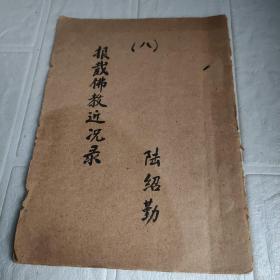 (八)
报载佛教近况录
陆绍勤